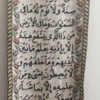 سنة ولا نوم له ما في
السموات وما في الأرض
من ذا الذي يشفع عنده
إلا بإذنه يعلم ما بين
أيديهم وما خلفهم و
لا يحيطون بشيء من
علمه إلا بما شاء